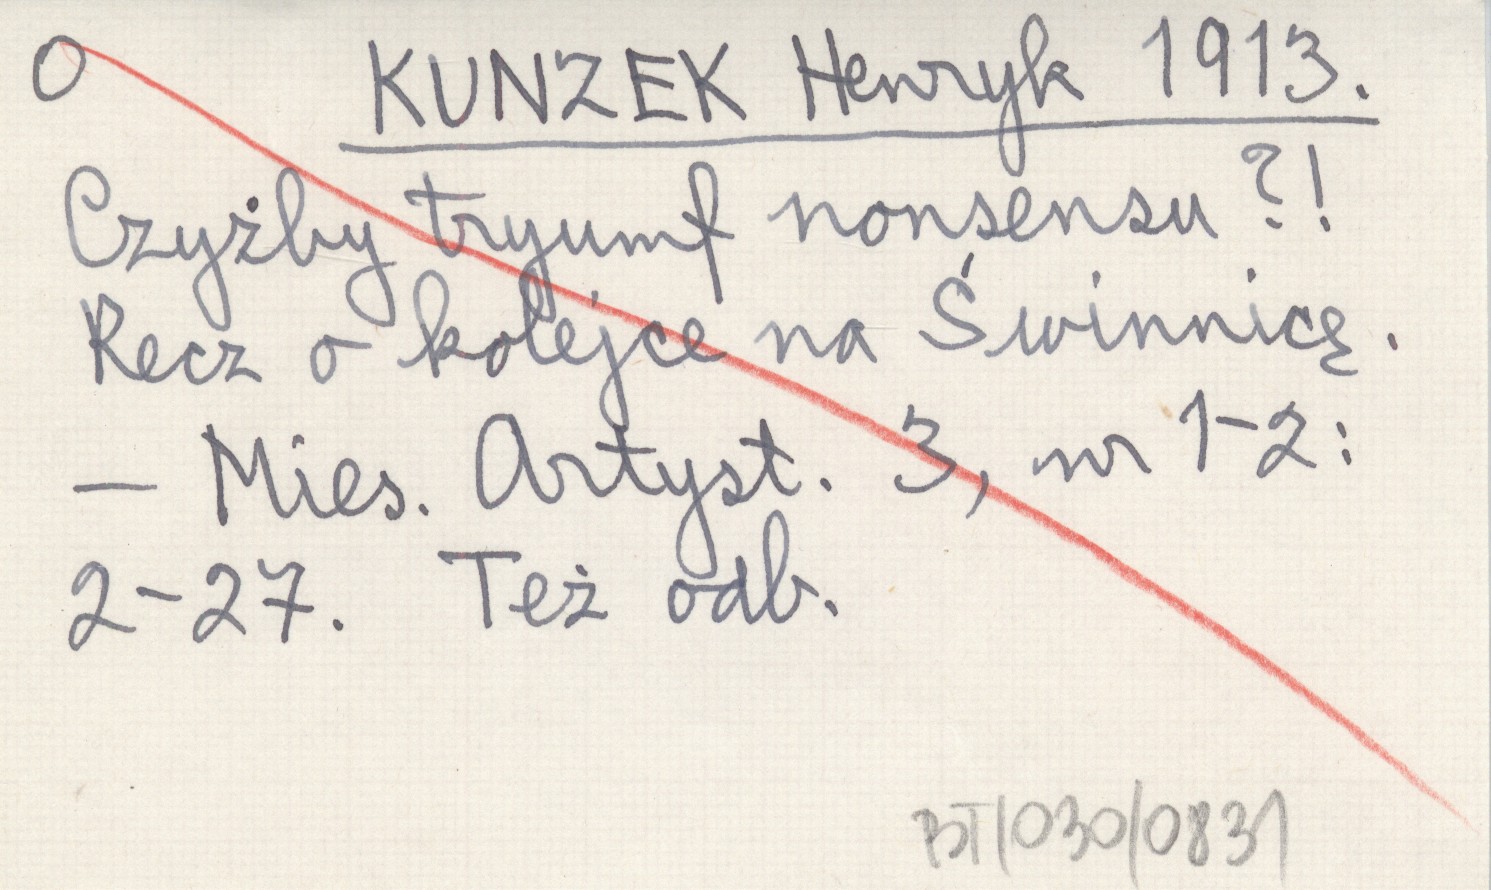 O KUNZEK Henryk 1913.
Czyżby tryumf nonsensu?!
Rzecz o kolejce na Świnnicę.
— Mies. Artyst. 3, nr 1-2:
2-27. Też odb.
BT/030/0831